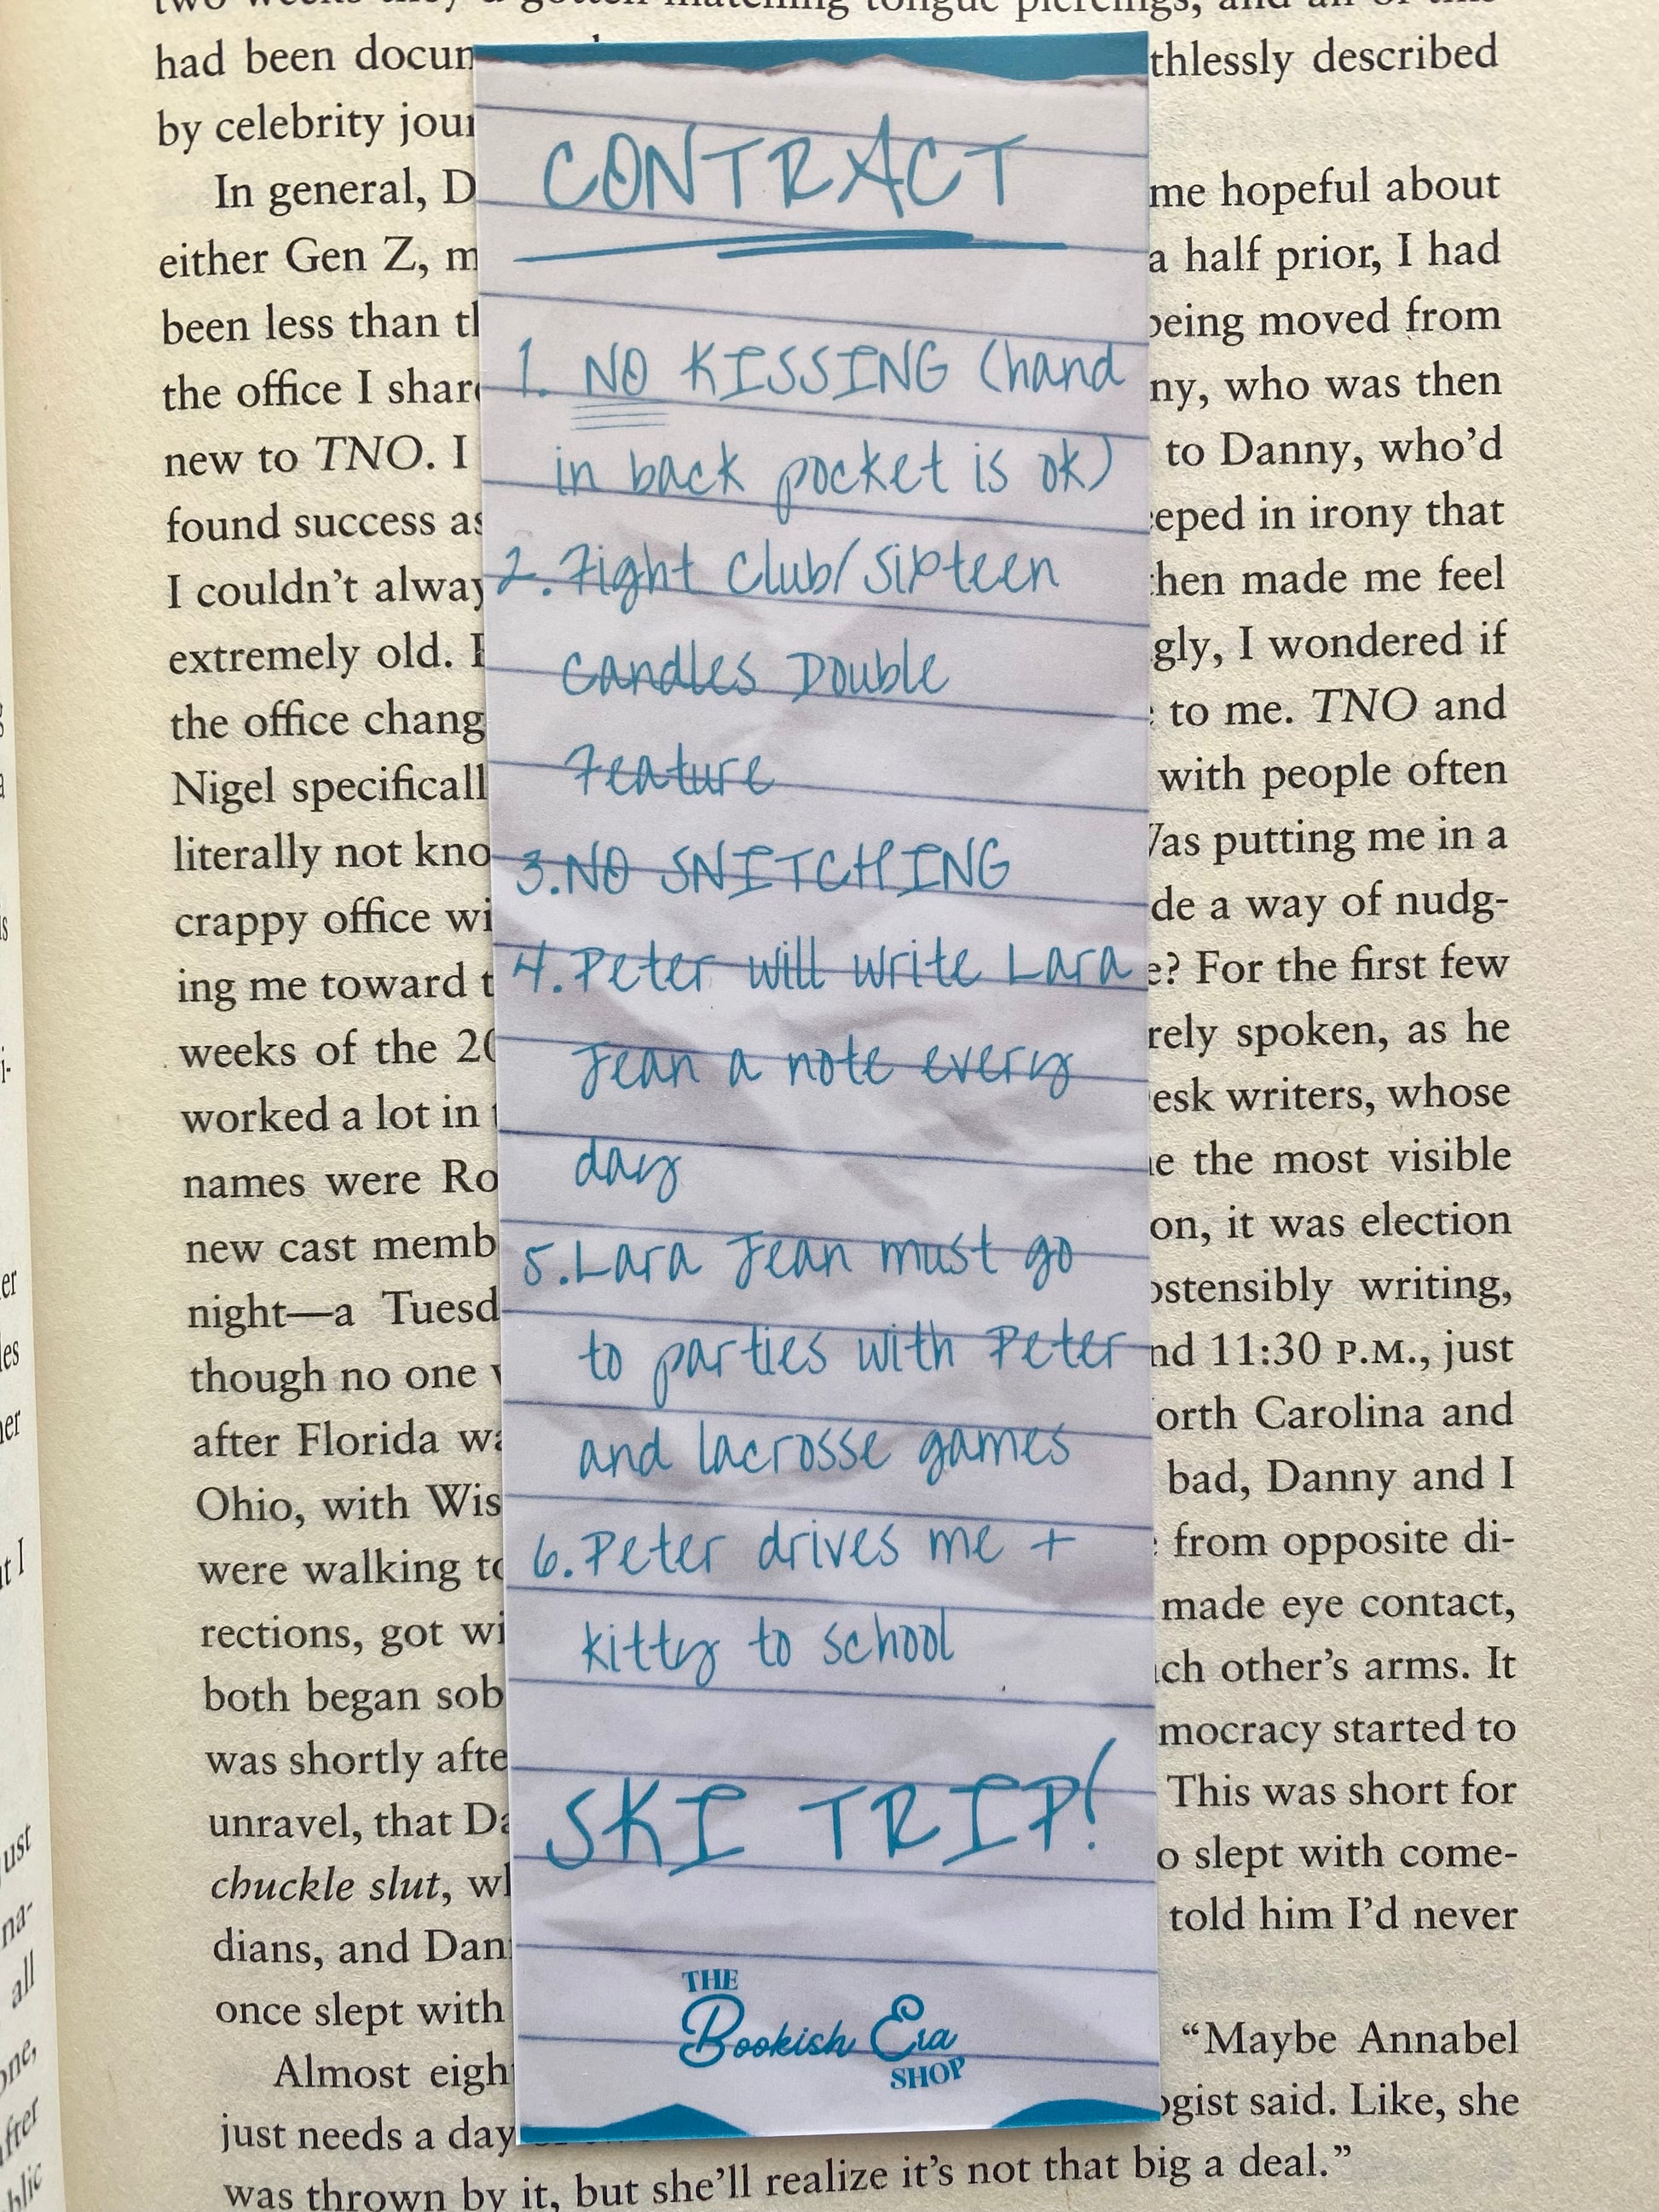 two weeks they'd gotten matching tongue piercings, and all of this
had been thlessly described
by celebrity
CONTRACT
In general, me hopeful about
either Gen Z, a half prior, I had
been less than being moved from
1. NO KISSING (hand
the office I ny, who was then
in back pocket is ok)
new to TNO. I to Danny, who'd
found success eeped in irony that
2. Fight Club/Sixteen
I couldn't hen made me feel
Candles Double
extremely old. gly, I wondered if
the office to me. TNO and
Feature
Nigel with people often
literally not Was putting me in a
3. NO SNITCHING
crappy office de a way of nudg-
4. Peter will write Lara
ing me toward e? For the first few
Jean a note every
weeks of the rely spoken, as he
worked a lot in esk writers, whose
day
names were the most visible
new cast on, it was election
5. Lara Jean must go
night—a ostensibly writing,
to parties with Peter
though no one nd 11:30 P.M., just
after Florida orth Carolina and
and lacrosse games
Ohio, with bad, Danny and I
6. Peter drives me +
were walking from opposite di-
rections, got made eye contact,
kitty to school
both began ch other's arms. It
was shortly mocracy started to
SKI TRIP!
unravel, that This was short for
chuckle slut, o slept with come-
dians, and told him I'd never
once slept with
THE
Bookish Era
SHOP
Almost "Maybe Annabel
just needs a day ogist said. Like, she
was thrown by it, but she'll realize it's not that big a deal."